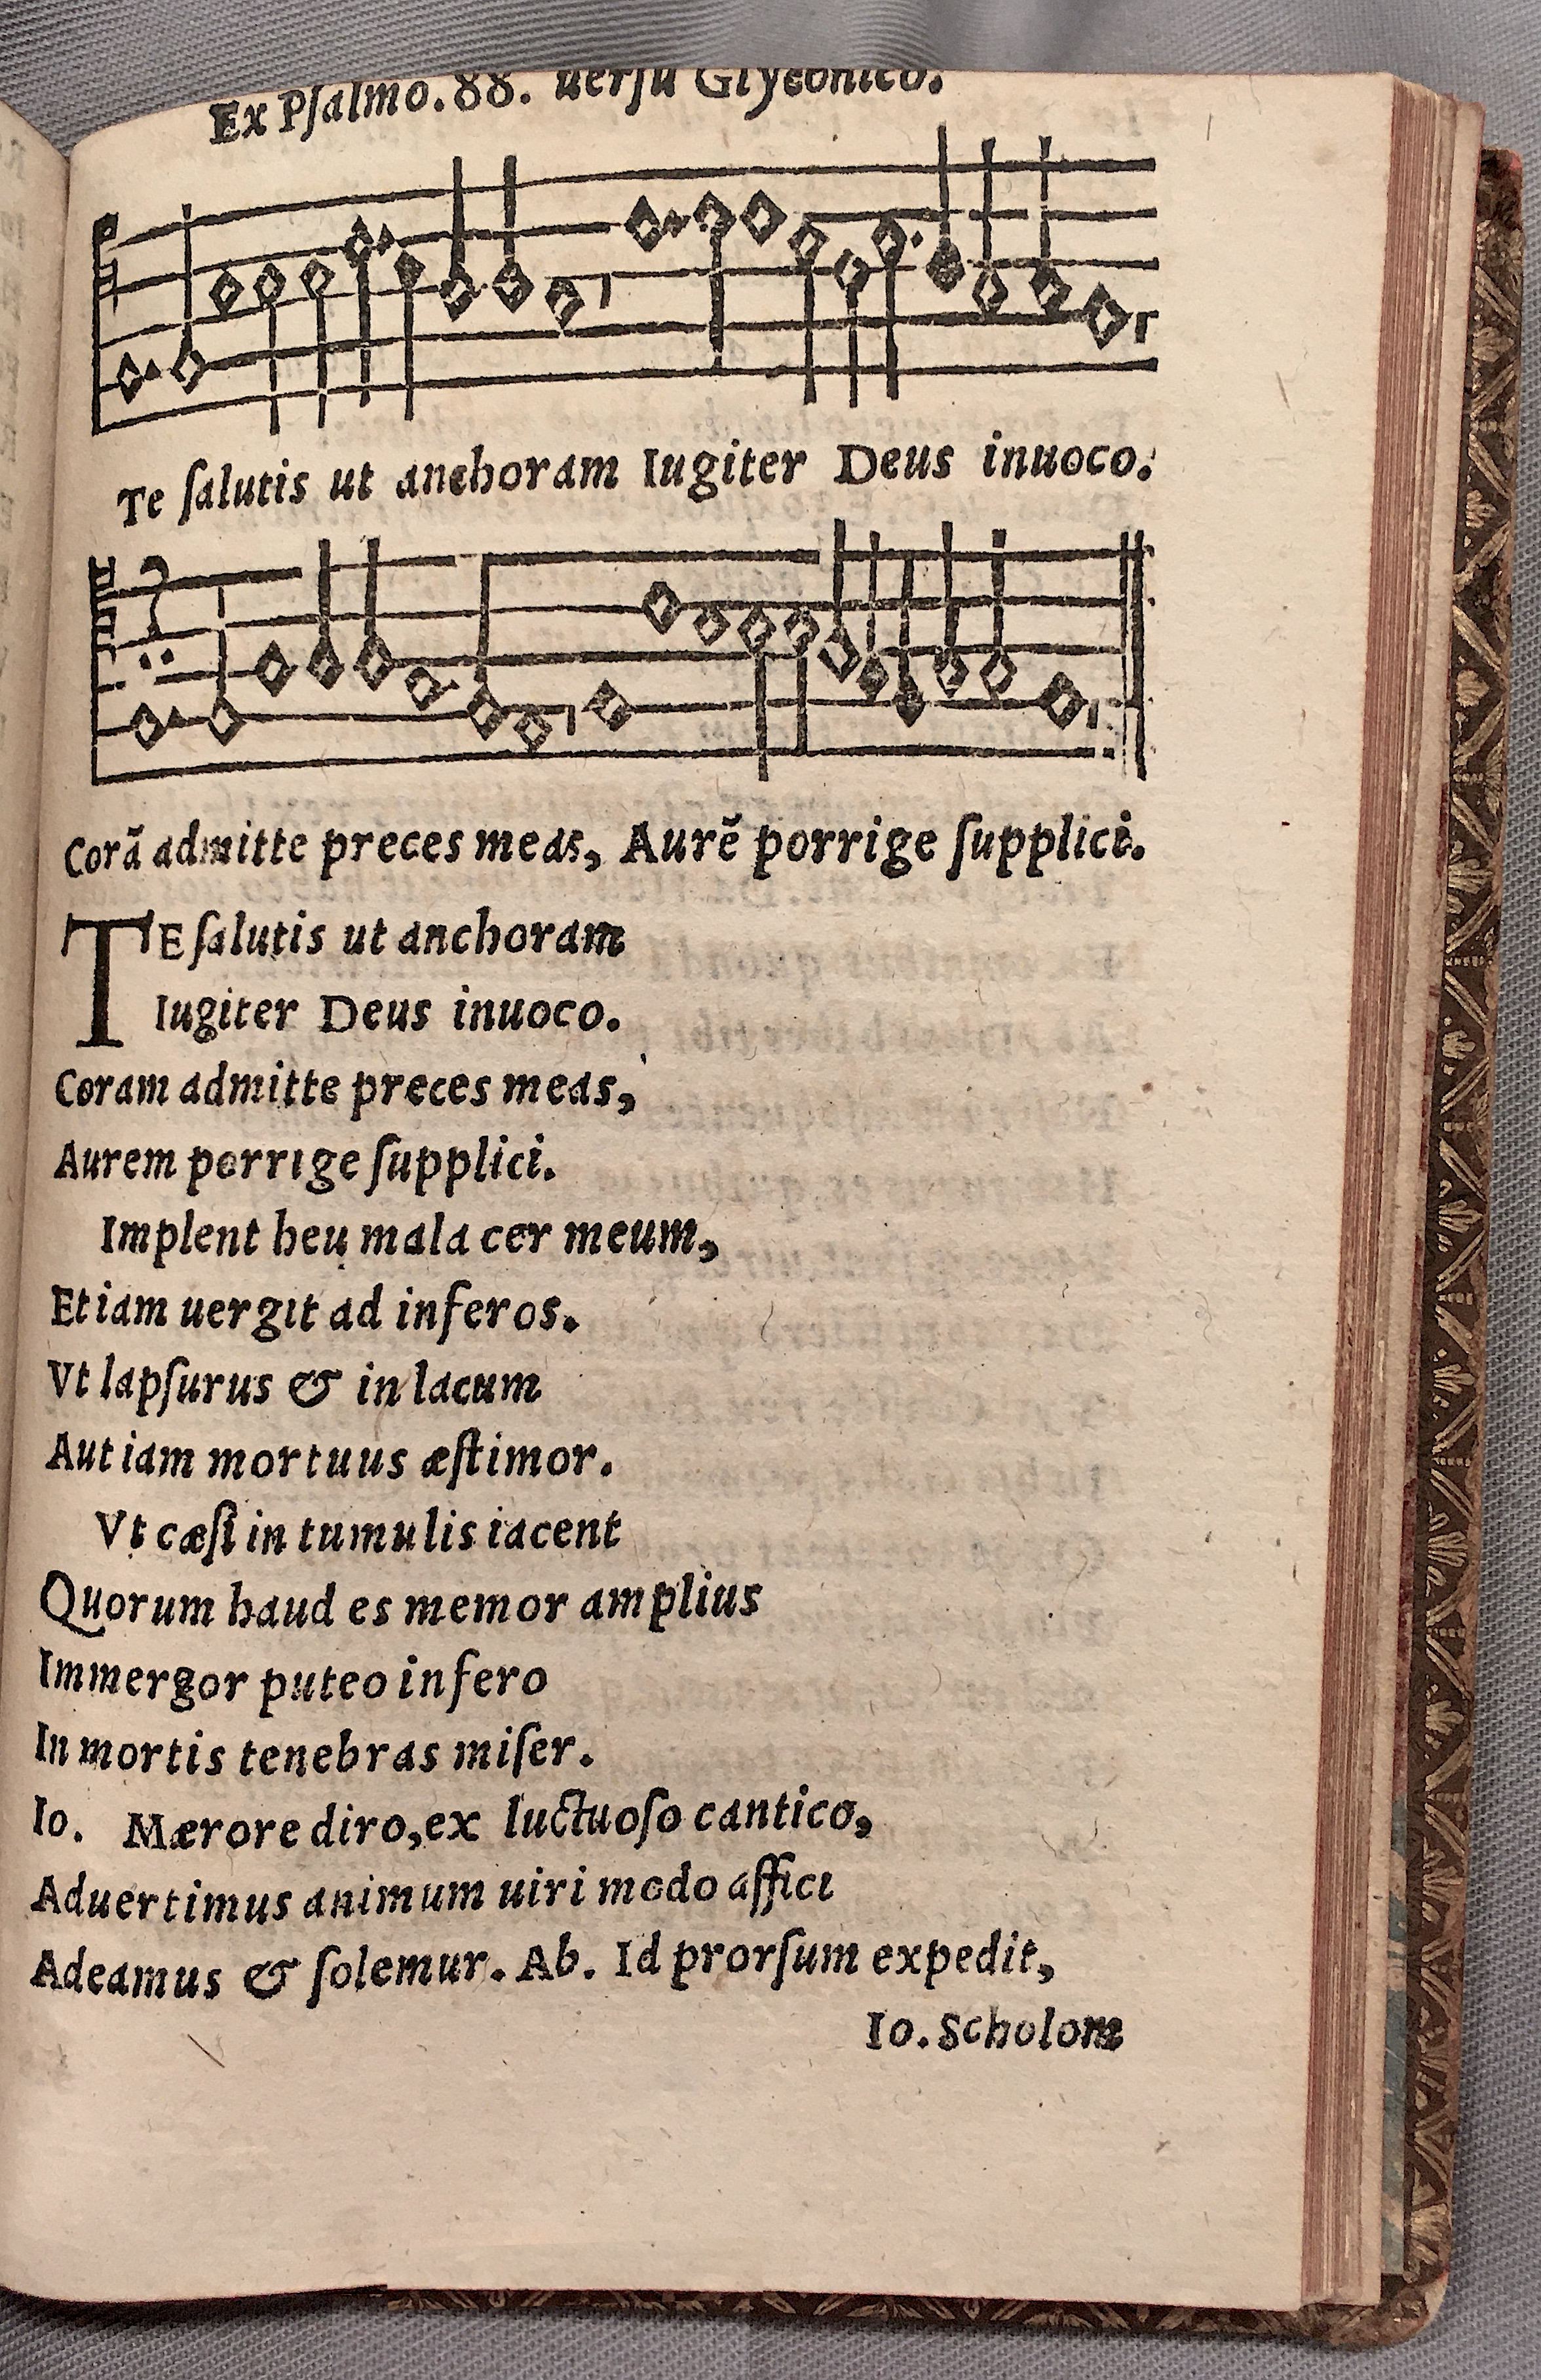 Ex Pſalmo. 88. uerſu Glyconico.
Te ſalutis ut anchoram Iugiter Deus inuoco.
Corã admitte preces meas, Aurẽ porrige ſupplici.
TE ſalutis ut anchoram
Iugiter Deus inuoco.
Coram admitte preces meas,
Aurem porrige ſupplici.
Implent heu mala cor meum,
Et iam uergit ad inferos.
Vt lapſurus & in lacum
Aut iam mortuus æſtimor.
Vt cæſi in tumulis iacent
Quorum haud es memor amplius
Immergor puteo infero
In mortis tenebras miſer.
Io. Mærore diro, ex luctuoſo cantico,
Aduertimus animum uiri modo affici
Adeamus & ſolemur. Ab. Id prorſum expedit,
Io. Scholom